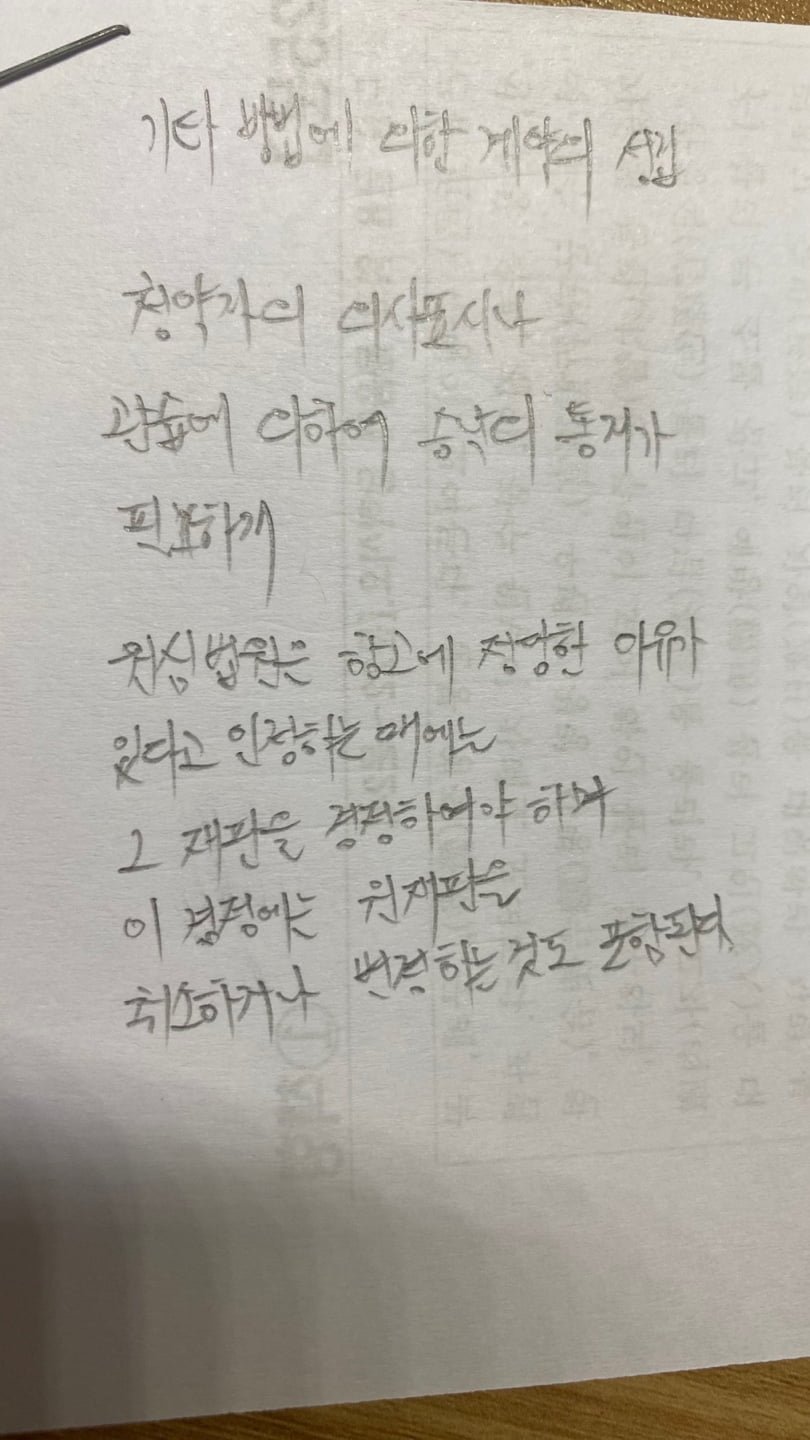 기타 방법에 의한 계약의 성립
청약자의 의사표시나
관습에 의하여 승낙의 통지가
필요하게
원심법원은 항고에 정당한 이유가
있다고 인정하는 때에는
그 재판을 경정하여야 하며
이 경정에는 원재판을
취소하거나 변경하는 것도 포함된다